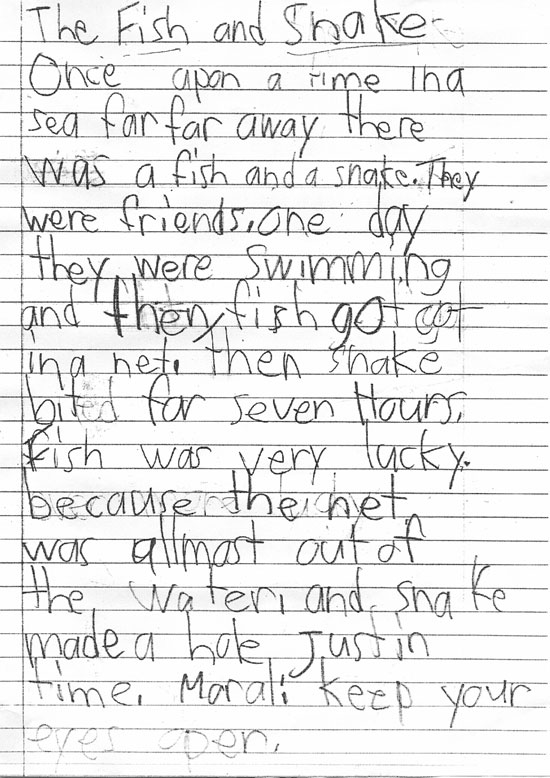 The Fish and Snake
Once apon a time in a
sea far far away there
was a fish and a snake. They
were friends. One day
they were swimming
and then fish got got
in a net. Then snake
bited for seven Hours.
Fish was very lucky.
because the net
was allmost out of
the water, and snake
made a hole just in
time. Moral: keep your
eyes open.